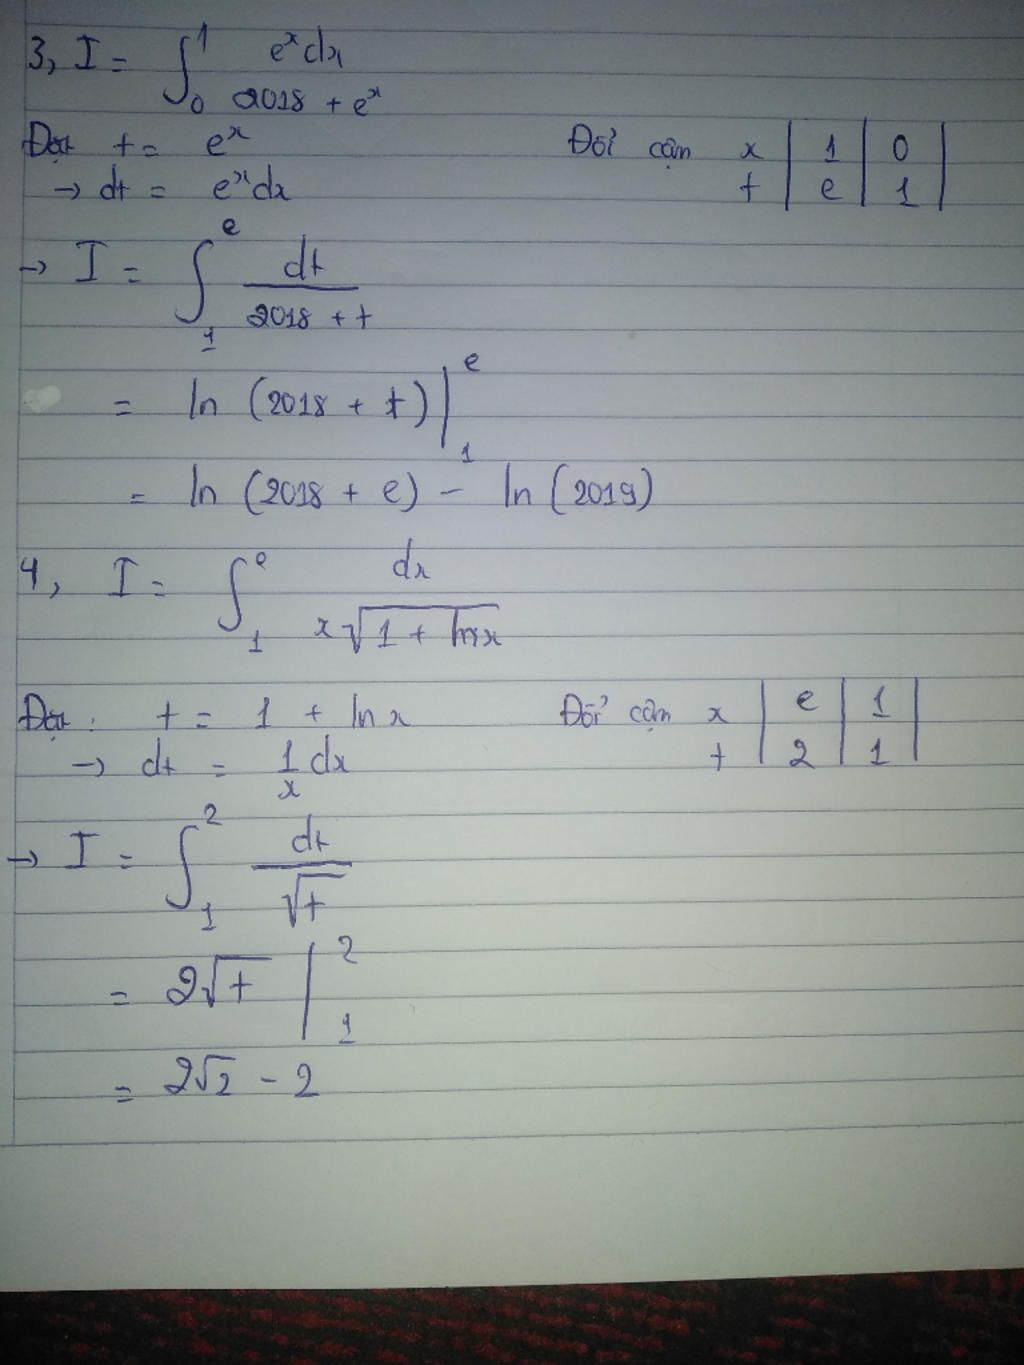 3, I = ∫₀¹ eˣdx / 2018 + eˣ
Đặt t = eˣ Đổi cận x | 1 | 0 |
→ dt = eˣdx t | e | 1 |
→ I = ∫₁ᵉ dt / 2018 + t
= ln (2018 + t) |₁ᵉ
= ln (2018 + e) - ln (2019)
4, I = ∫₁ᵉ dx / x√(1 + lnx)
Đặt: t = 1 + lnx Đổi cận x | e | 1 |
→ dt = 1/x dx t | 2 | 1 |
→ I = ∫₁² dt / √t
= 2√t |₁²
= 2√2 - 2